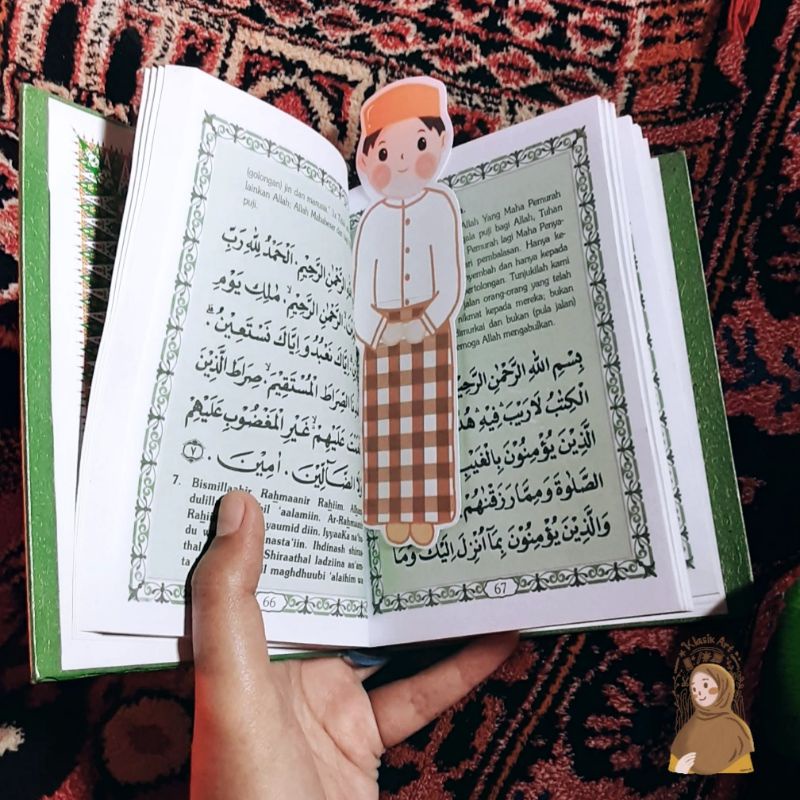 (golongan) jin dan manusia."
lainkan Allah; Allah Mahabesar dan
puji.
الرَّحْمٰنِ الرَّحِيْمِ. اَلْحَمْدُ لِلّٰهِ رَبِّ
الرَّحْمٰنِ الرَّحِيْمِ. مٰلِكِ يَوْمِ
اِيَّاكَ نَعْبُدُ وَاِيَّاكَ نَسْتَعِيْنُ.
الصِّرَاطَ الْمُسْتَقِيْمَ. صِرَاطَ الَّذِيْنَ
عَلَيْهِمْ غَيْرِ الْمَغْضُوْبِ عَلَيْهِمْ
وَلَا الضَّآلِّيْنَ. اٰمِيْنَ. ٧
7. Bismillaahir Rahmaanir Rahiim.
'aalamiin. Ar-Rahmaanir
yaumid diin. IyyaaKa na'bu
du nasta'iin. Ihdinash shiraa
Shiraathal ladziina an'am
ta maghdhuubi 'alaihim wa
66
Allah Yang Maha Pemurah
puji bagi Allah, Tuhan
Pemurah lagi Maha Penya-
pembalasan. Hanya ke-
dan hanya kepada
Tunjukilah kami
jalan orang-orang yang telah
nikmat kepada mereka; bukan
dimurkai dan bukan (pula jalan)
Allah mengabulkan.
بِسْمِ اللهِ الرَّحْمٰنِ الرَّحِيْمِ
الْكِتٰبُ لَا رَيْبَ فِيْهِ
الَّذِيْنَ يُؤْمِنُوْنَ بِالْغَيْبِ
الصَّلٰوةَ وَمِمَّا رَزَقْنٰهُمْ
وَالَّذِيْنَ يُؤْمِنُوْنَ بِمَآ اُنْزِلَ اِلَيْكَ وَمَا
67
Klasik Art